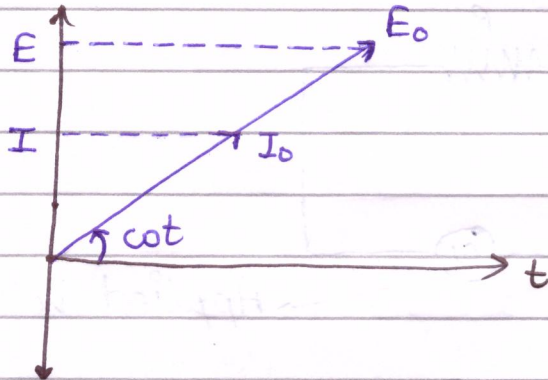 E
E₀
I
I₀
ωt
t